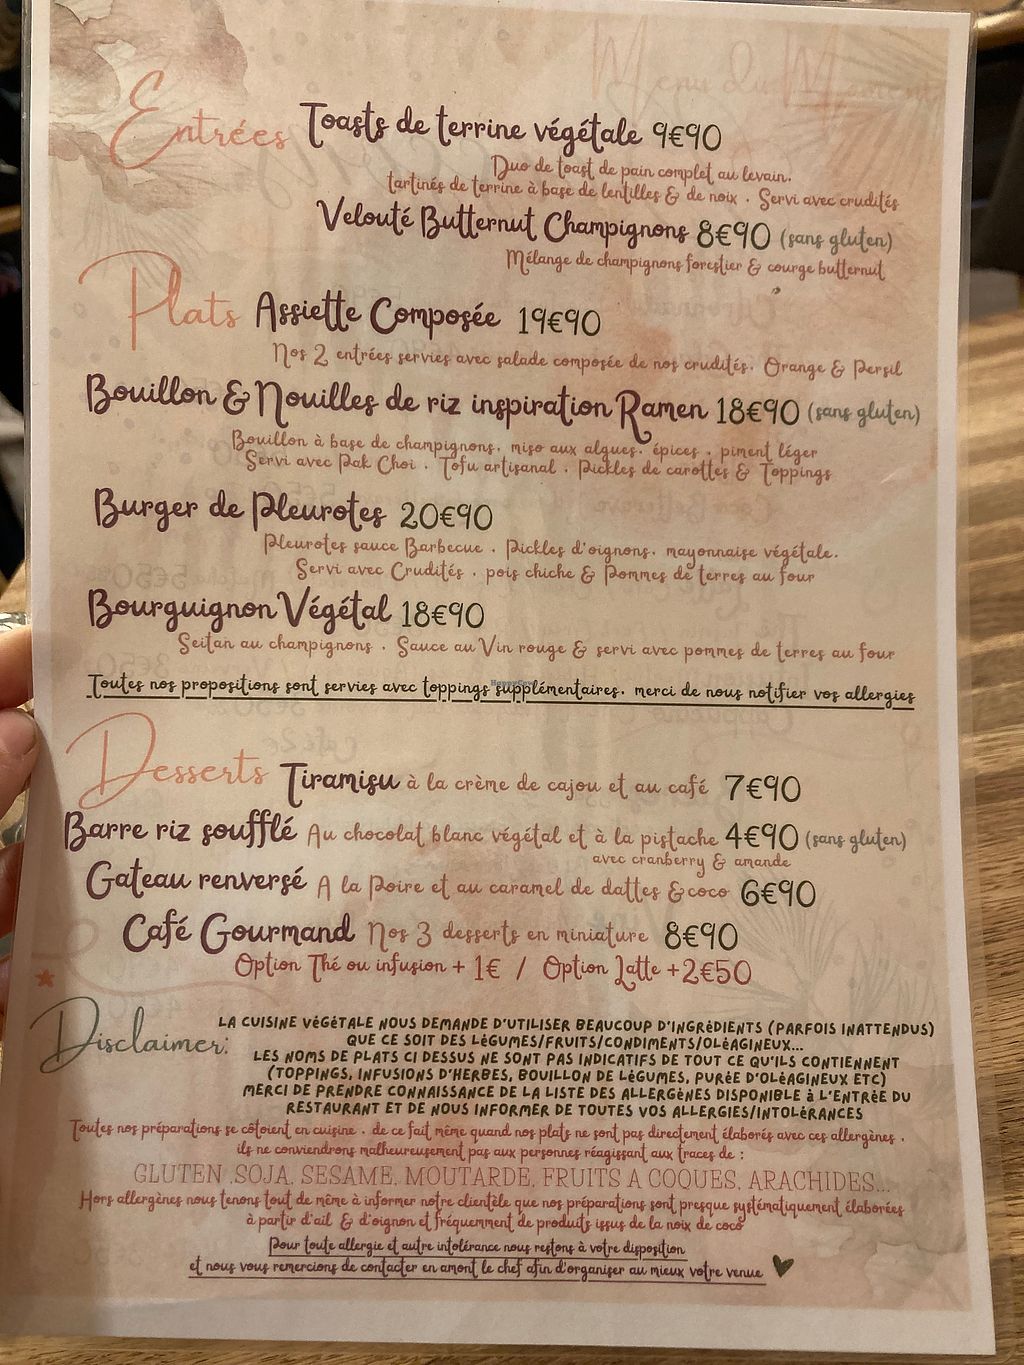 Menu du Moment
Entrées
Toasts de terrine végétale 9€90
Duo de toast de pain complet au levain.
tartinés de terrine à base de lentilles & de noix . Servi avec crudités
Velouté Butternut Champignons 8€90 (sans gluten)
Mélange de champignons forestier & courge butternut
Plats
Assiette Composée 19€90
Nos 2 entrées servies avec salade composée de nos crudités. Orange & Persil
Bouillon & Nouilles de riz inspiration Ramen 18€90 (sans gluten)
Bouillon à base de champignons. miso aux algues. épices . piment léger
Servi avec Pak Choi . Tofu artisanal . Pickles de carottes & Toppings
Burger de Pleurotes 20€90
Pleurotes sauce Barbecue . Pickles d'oignons. mayonnaise végétale.
Servi avec Crudités . pois chiche & Pommes de terres au four
Bourguignon Végétal 18€90
Seitan au champignons . Sauce au Vin rouge & servi avec pommes de terres au four
HappyCow
Toutes nos propositions sont servies avec toppings supplémentaires. merci de nous notifier vos allergies
Desserts
Tiramisu à la crème de cajou et au café 7€90
Barre riz soufflé Au chocolat blanc végétal et à la pistache 4€90 (sans gluten)
avec cranberry & amande
Gateau renversé A la Poire et au caramel de dattes & coco 6€90
Café Gourmand Nos 3 desserts en miniature 8€90
Option Thé ou infusion + 1€ / Option Latte +2€50
Disclaimer:
LA CUISINE VéGéTALE NOUS DEMANDE D'UTILISER BEAUCOUP D'INGRéDIENTS (PARFOIS INATTENDUS)
QUE CE SOIT DES LéGUMES/FRUITS/CONDIMENTS/OLéAGINEUX...
LES NOMS DE PLATS CI DESSUS NE SONT PAS INDICATIFS DE TOUT CE QU'ILS CONTIENNENT
(TOPPINGS, INFUSIONS D'HERBES, BOUILLON DE LéGUMES, PURéE D'OLéAGINEUX ETC)
MERCI DE PRENDRE CONNAISSANCE DE LA LISTE DES ALLERGèNES DISPONIBLE à L'ENTRéE DU
RESTAURANT ET DE NOUS INFORMER DE TOUTES VOS ALLERGIES/INTOLéRANCES
Toutes nos préparations se côtoient en cuisine . de ce fait même quand nos plats ne sont pas directement élaborés avec ces allergènes .
ils ne conviendrons malheureusement pas aux personnes réagissant aux traces de :
GLUTEN .SOJA. SESAME. MOUTARDE. FRUITS A COQUES. ARACHIDES...
Hors allergènes nous tenons tout de même à informer notre clientèle que nos préparations sont presque systématiquement élaborées
à partir d'ail & d'oignon et fréquemment de produits issus de la noix de coco
Pour toute allergie et autre intolérance nous restons à votre disposition
et nous vous remercions de contacter en amont le chef afin d'organiser au mieux votre venue